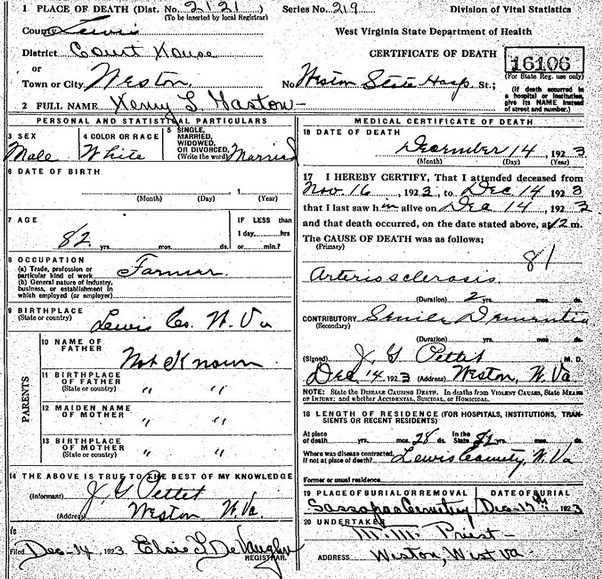 1 PLACE OF DEATH (Dist. No. 2121) Series No. 219 Division of Vital Statistics
(To be inserted by local Registrar)
County Lewis West Virginia State Department of Health
District Court House CERTIFICATE OF DEATH 16106
or (For State Reg. use only)
Town or City Weston No. Weston State Hosp St.; (If death occurred in a hospital or institution, give its NAME instead of street and number.)
2 FULL NAME Henry L. Gaston
PERSONAL AND STATISTICAL PARTICULARS
3 SEX 4 COLOR OR RACE 5 SINGLE, MARRIED, WIDOWED, OR DIVORCED, (Write the word)
Male White Married
6 DATE OF BIRTH
(Month) (Day) (Year)
7 AGE IF LESS than
1 day, hrs
82 yrs. mos. ds. or min.?
8 OCCUPATION
(a) Trade, profession or particular kind of work Farmer.
(b) General nature of industry, business, or establishment in which employed (or employer)
9 BIRTHPLACE
(State or country) Lewis Co. W. Va
PARENTS
10 NAME OF FATHER Not Known
11 BIRTHPLACE OF FATHER (State or country) " "
12 MAIDEN NAME OF MOTHER " "
13 BIRTHPLACE OF MOTHER (State or country) " "
14 THE ABOVE IS TRUE TO THE BEST OF MY KNOWLEDGE
(Informant) J. G. Pettet
(Address) Weston W. Va.
15
Filed Dec-14, 1923. Elsie DeVaughn
REGISTRAR.
MEDICAL CERTIFICATE OF DEATH
16 DATE OF DEATH
December 14, 1923
(Month) (Day) (Year)
17 I HEREBY CERTIFY, That I attended deceased from
Nov 16, 1923, to Dec 14, 1923
that I last saw him alive on Dec 14, 1923
and that death occurred, on the date stated above, at 12 m.
The CAUSE OF DEATH was as follows;
(Primary)
81
Arteriosclerosis
(Duration) 2 yrs. mos. ds.
CONTRIBUTORY Senile Dementia
(Secondary)
(Duration) yrs. mos. ds.
(Signed) J. G. Pettet M. D.
Dec 14, 1923 (Address) Weston, W. Va
NOTE: State the DISEASE CAUSING DEATH. In deaths from VIOLENT CAUSES, State MEANS OF INJURY; and whether ACCIDENTAL, SUICIDAL, or HOMICIDAL.
18 LENGTH OF RESIDENCE (FOR HOSPITALS, INSTITUTIONS, TRANSIENTS OR RECENT RESIDENTS)
At place of death yrs. mos. 28 ds. In the State yrs. mos. ds.
Where was disease contracted, if not at place of death? Lewis County, W. Va
Former or usual residence
19 PLACE OF BURIAL OR REMOVAL DATE OF BURIAL
Cemetery Dec-17th 1923
20 UNDERTAKER M. M. Priest
ADDRESS Weston, West Va